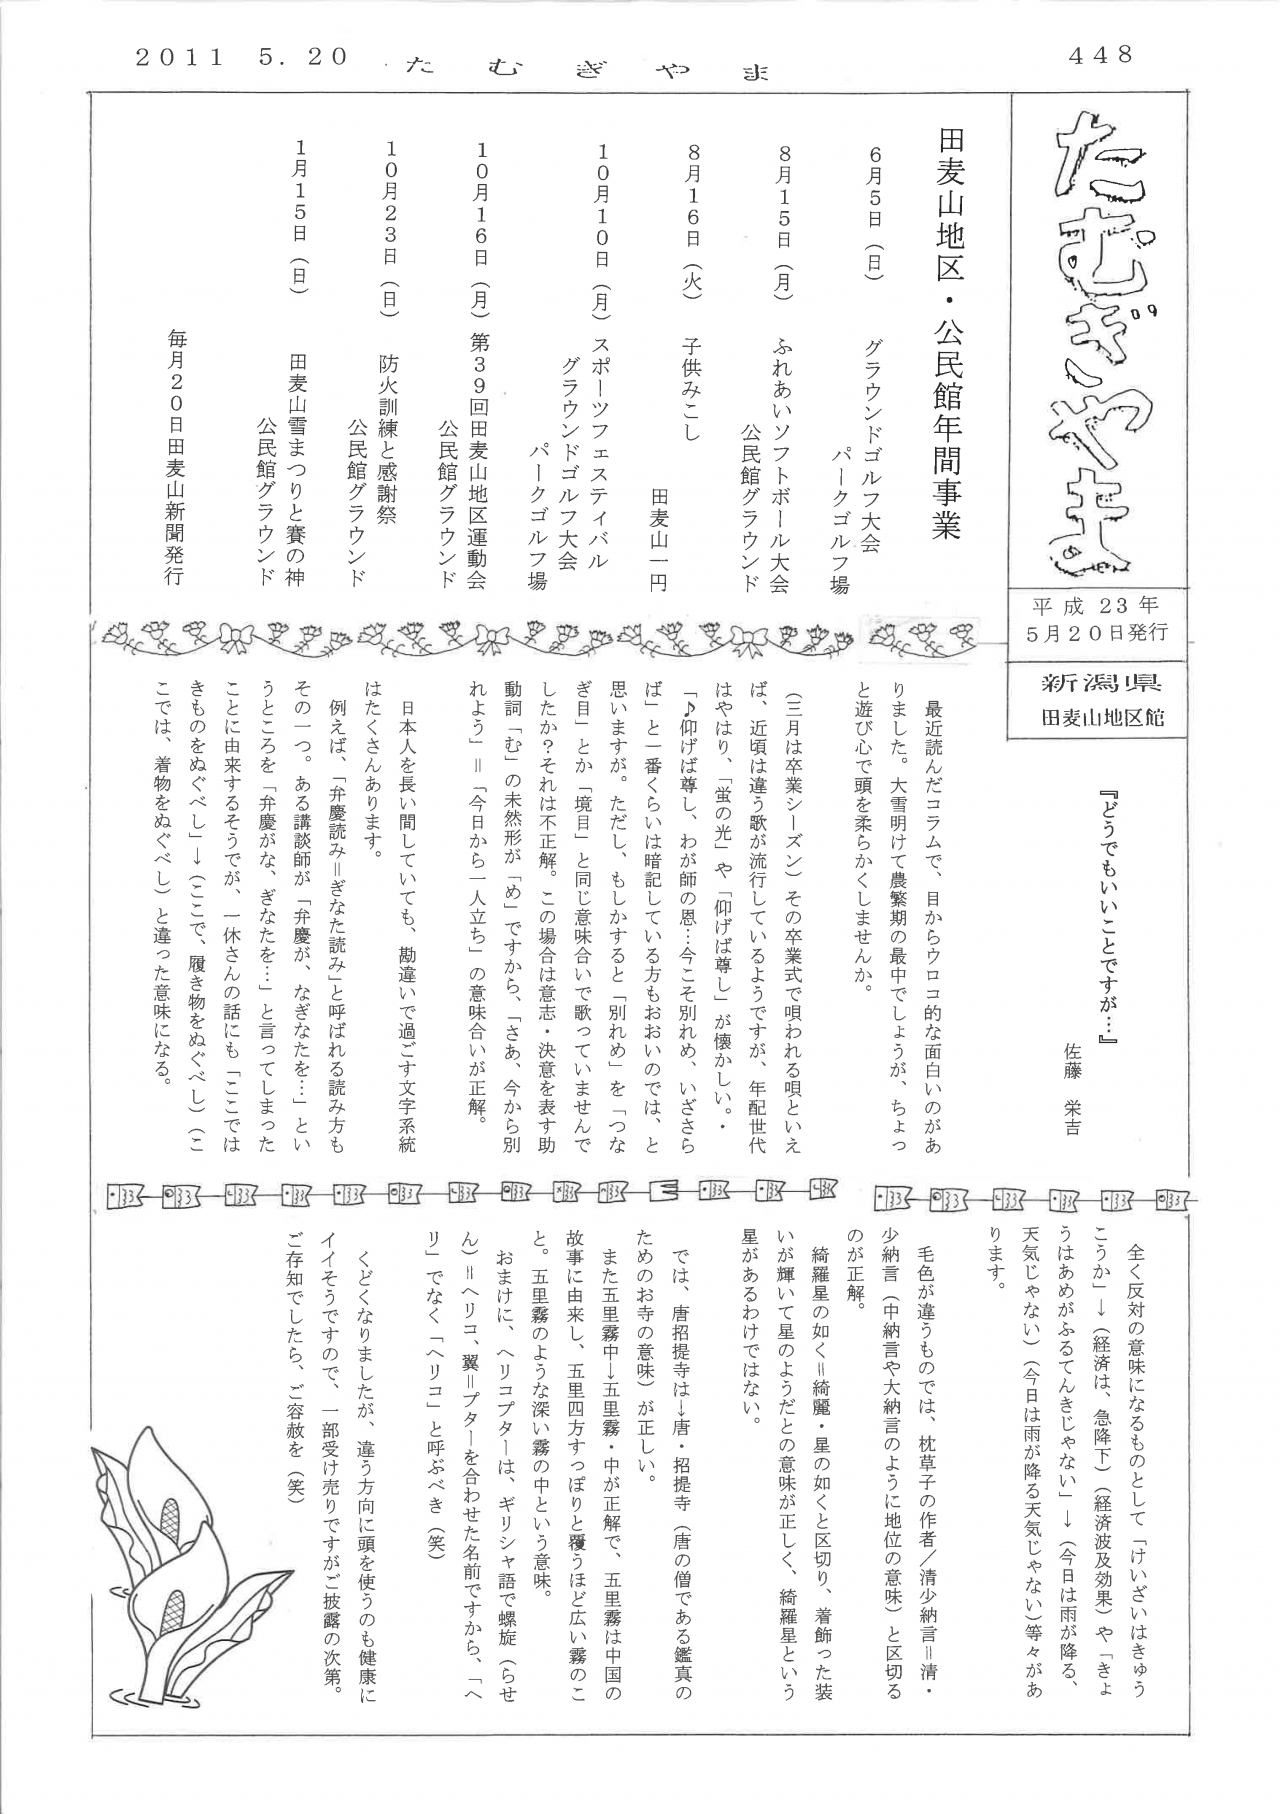 2011 5.20 たむぎやま 448
たむぎやま
平成23年
5月20日発行
新潟県
田麦山地区館
田麦山地区・公民館年間事業
6月5日(日) グラウンドゴルフ大会
パークゴルフ場
8月15日(月) ふれあいソフトボール大会
公民館グラウンド
8月16日(火) 子供みこし
田麦山一円
10月10日(月)スポーツフェスティバル
グラウンドゴルフ大会
パークゴルフ場
10月16日(月)第39回田麦山地区運動会
公民館グラウンド
10月23日(日) 防火訓練と感謝祭
公民館グラウンド
1月15日(日) 田麦山雪まつりと賽の神
公民館グラウンド
毎月20日田麦山新聞発行
『どうでもいいことですが…』
佐藤 栄吉
最近読んだコラムで、目からウロコ的な面白いのがあ
りました。大雪明けて農繁期の最中でしょうが、ちょっ
と遊び心で頭を柔らかくしませんか。
(三月は卒業シーズン)その卒業式で唄われる唄といえ
ば、近頃は違う歌が流行しているようですが、年配世代
はやはり、「蛍の光」や「仰げば尊し」が懐かしい。・
「♪仰げば尊し、わが師の恩…今こそ別れめ、いざさら
ば」と一番くらいは暗記している方もおおいのでは、と
思いますが。ただし、もしかすると「別れめ」を「つな
ぎ目」とか「境目」と同じ意味合いで歌っていませんで
したか?それは不正解。この場合は意志・決意を表す助
動詞「む」の未然形が「め」ですから、「さあ、今から別
れよう」=「今日から一人立ち」の意味合いが正解。
日本人を長い間していても、勘違いで過ごす文字系統
はたくさんあります。
例えば、「弁慶読み=ぎなた読み」と呼ばれる読み方も
その一つ。ある講談師が「弁慶が、なぎなたを…」とい
うところを「弁慶がな、ぎなたを…」と言ってしまった
ことに由来するそうでが、一休さんの話にも「ここでは
きものをぬぐべし」→(ここで、履き物をぬぐべし)(こ
こでは、着物をぬぐべし)と違った意味になる。
全く反対の意味になるものとして「けいざいはきゅう
こうか」→(経済は、急降下)(経済波及効果)や「きょ
うはあめがふるてんきじゃない」→(今日は雨が降る、
天気じゃない)(今日は雨が降る天気じゃない)等々があ
ります。
毛色が違うものでは、枕草子の作者/清少納言=清・
少納言(中納言や大納言のように地位の意味)と区切る
のが正解。
綺羅星の如く=綺麗・星の如くと区切り、着飾った装
いが輝いて星のようだとの意味が正しく、綺羅星という
星があるわけではない。
では、唐招提寺は→唐・招提寺(唐の僧である鑑真の
ためのお寺の意味)が正しい。
また五里霧中→五里霧・中が正解で、五里霧は中国の
故事に由来し、五里四方すっぽりと覆うほど広い霧のこ
と。五里霧のような深い霧の中という意味。
おまけに、ヘリコプターは、ギリシャ語で螺旋(らせ
ん)=ヘリコ、翼=プターを合わせた名前ですから、「ヘ
リ」でなく「ヘリコ」と呼ぶべき(笑)
くどくなりましたが、違う方向に頭を使うのも健康に
イイそうですので、一部受け売りですがご披露の次第。
ご存知でしたら、ご容赦を(笑)